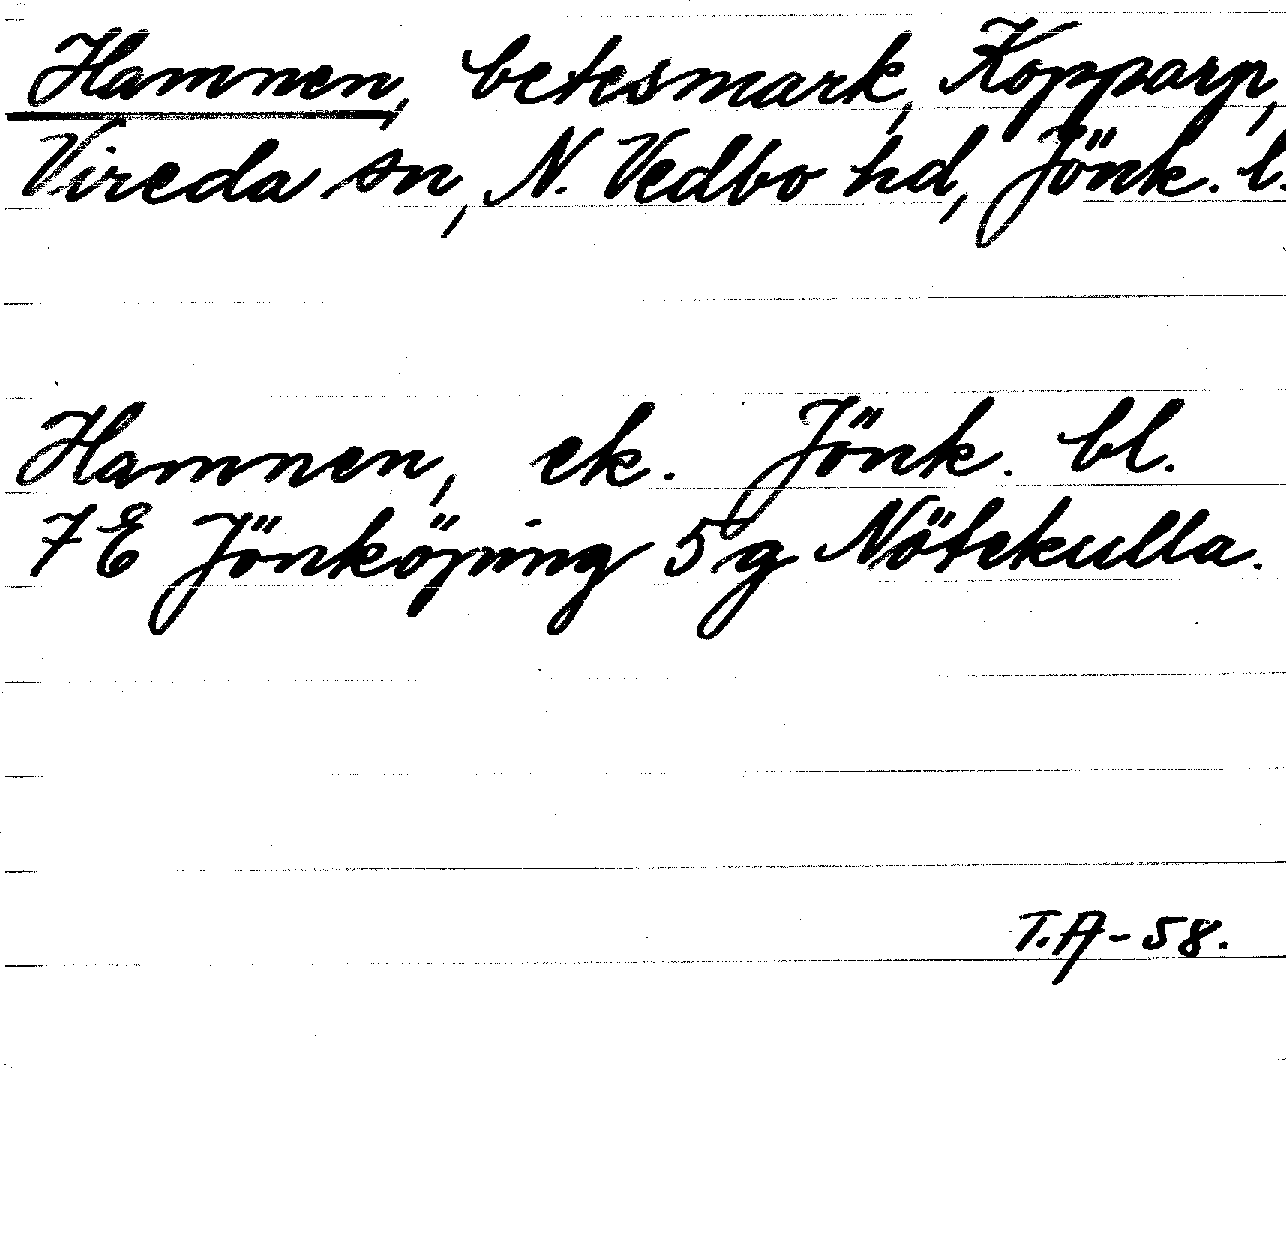 Hamnen, betesmark, Kopparp,
Vireda sn, N. Vedbo hd, Jönk. l.
Hamnen, ek. Jönk. bl.
7E Jönköping 5g Nötekulla.
T.A-58.